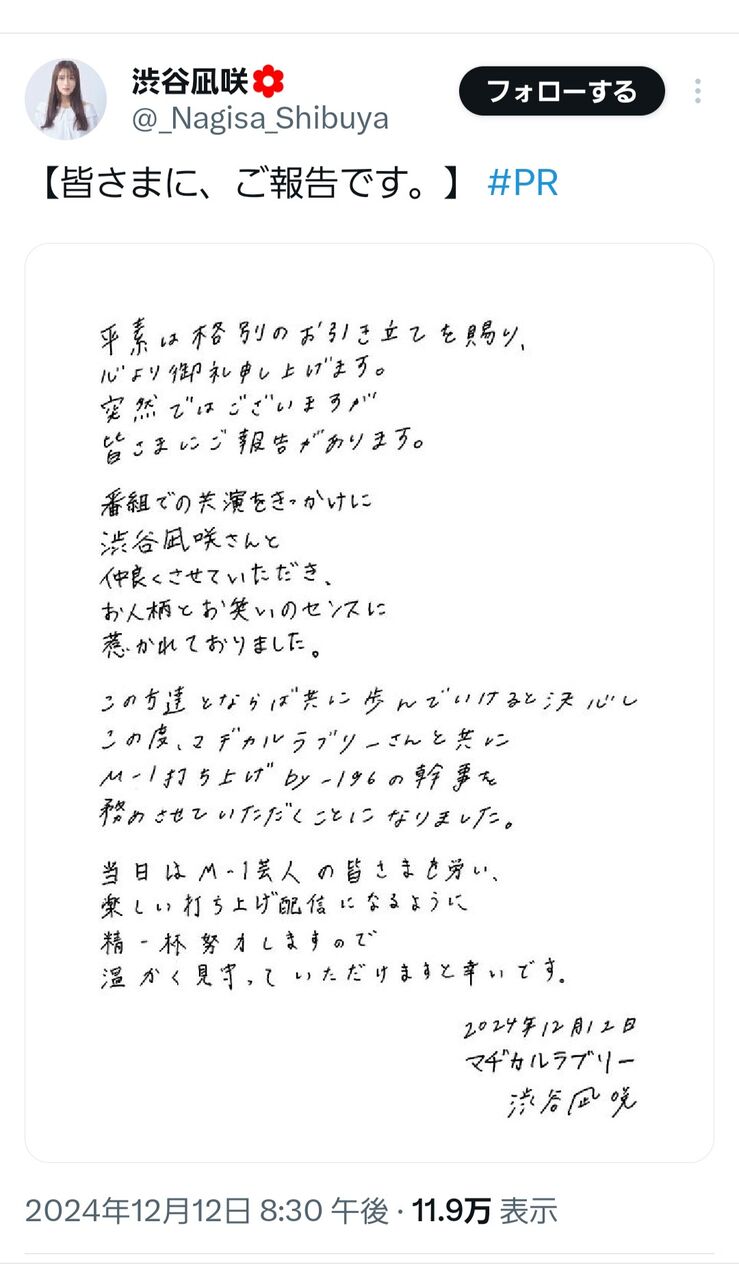 渋谷凪咲
@_Nagisa_Shibuya
フォローする
【皆さまに、ご報告です。】 #PR
平素は格別のお引き立てを賜り、
心より御礼申し上げます。
突然ではございますが
皆さまにご報告があります。
番組での共演をきっかけに
渋谷凪咲さんと
仲良くさせていただき、
お人柄とお笑いのセンスに
惹かれておりました。
この方達とならば共に歩んでいけると決心し
この度、マヂカルラブリーさんと共に
M-1打ち上げby-196の幹事を
務めさせていただくことになりました。
当日はM-1芸人の皆さまを労い、
楽しい打ち上げ配信になるように
精一杯努力しますので
温かく見守っていただけますと幸いです。
2024年12月12日
マヂカルラブリー
渋谷凪咲
2024年12月12日 8:30 午後 · 11.9万 表示